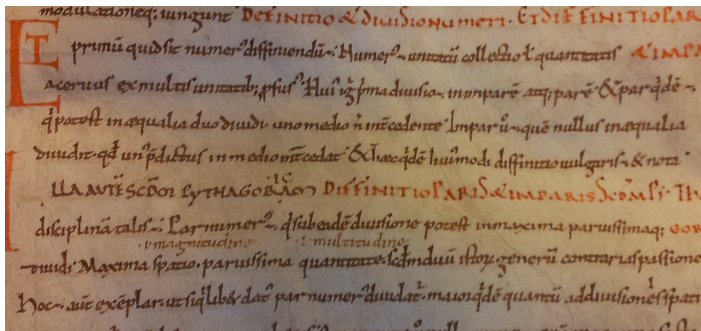 modulationeq; iungunt DEFINITIO & DIVISIO NUMERI. ET DIFFINITIO PAR
ET primū quid sit numer᷒ diffiniendū ÷. Numer᷒ ÷ unitatū collectio ł quantitatis & IMPA
acervus ex multis unitatib; ꝓfus᷒. Hui᷒ prima divisio ÷ in inparē atq; parē. & par qdē ÷
q̇ potest in æqualia duo dividi. uno medio n̄ intcedente. Inpar u᷒ ÷ quē nullus in æqualia
dividit. qđ un᷒ p̄dictus in medio intcedat. & hæc qdē huiusmodi diffinitio vulgaris ÷ & nota
ILLA AUTĒ SCDM PYTHAGORICAM DIFFINITIO PARIS & IMPARIS SCDM PI. THA
disciplinā talis ÷. Par numer᷒ ÷ q̇ sub eadē divisione potest in maxima parvissimaq; GOR
.i. magnitudine .i. multitudine
dividi. Maxima spatio. parvissima quantitate. scdm duū istoꝝ generū contrarias passione
hoc ÷. aut exēplar. ut siq̇liber dat᷒ par numer᷒ dividat᷒. maior qdē quantū ad divisionēs spati